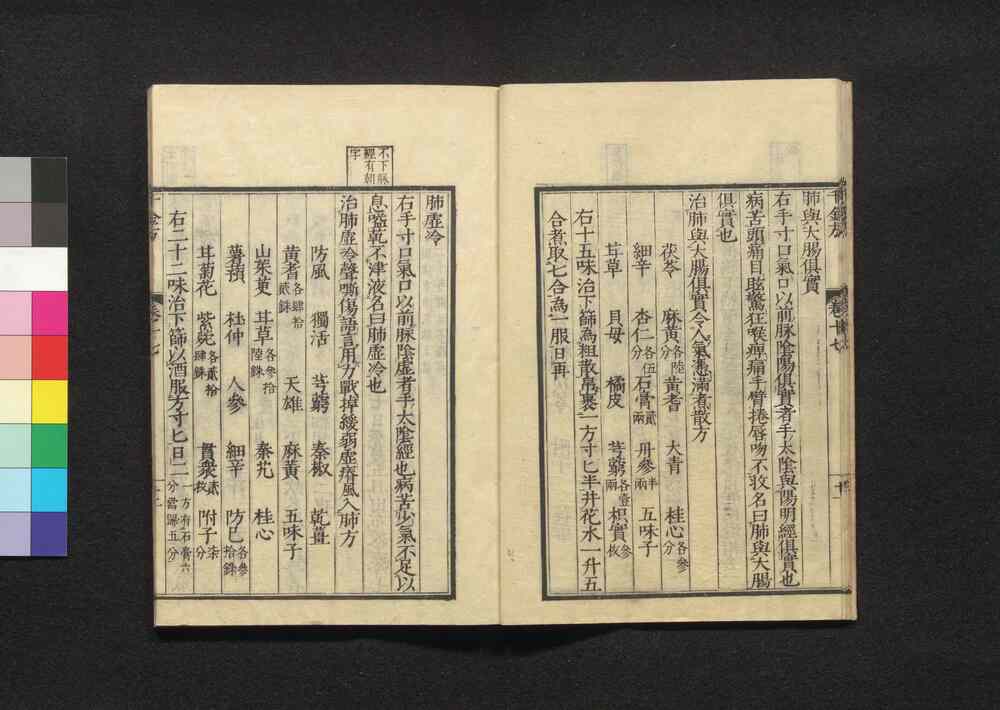 肺與大腸俱實
右手寸口氣口以前脉陰陽俱實者手太陰與陽明經俱實也
病苦頭痛目眩驚狂喉痺痛手臂捲唇吻不收名曰肺與大腸
俱實也
治肺與大腸俱實令人氣憑滿煮散方
茯苓 麻黃各陸分 黃耆 大青 桂心各參分
細辛 杏仁各伍分 石膏貳兩 丹參半兩 五味子
甘草 貝母 橘皮 芎藭各壹兩 枳實參枚
右十五味治下篩為粗散帛裹一方寸匕半井花水一升五
合煮取七合為一服日再
不下脉
經有朝
字
肺虛冷
右手寸口氣口以前脉陰虛者手太陰經也病苦少氣不足以
息嗌乾不津液名曰肺虛冷也
治肺虛冷聲嘶傷語言用力戰掉緩弱虛瘠風入肺方
防風 獨活 芎藭 秦椒 乾薑
黃耆各肆拾貳銖 天雄 麻黃 五味子
山茱萸 甘草各參拾陸銖 秦艽 桂心
薯蕷 杜仲 人參 細辛 防己各參拾銖
甘菊花 紫菀各貳拾肆銖 貫衆貳枚 附子柒分
右二十二味治下篩以酒服方寸匕日二一方有石膏六分當歸五分
卷十七